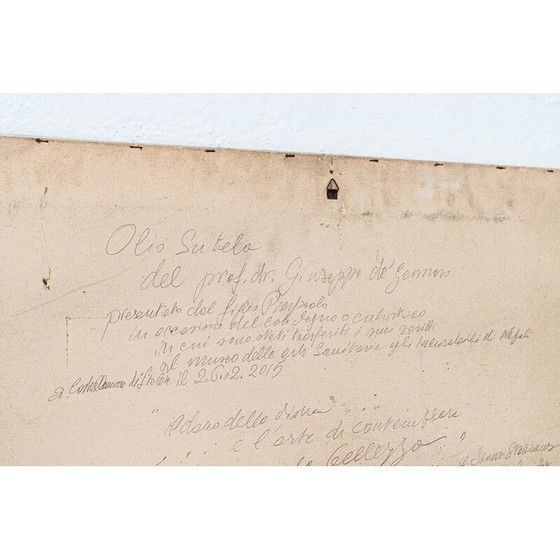 Olio Su tela
del prof. dr. Giuseppe de' Gennaro
presentato dal figlio Pierpaolo
in occasione del convegno oculistico
in cui sono stati trasferiti i suoi scritti
al museo delle arti Sanitarie gli Incurabili di Napoli
di Stabia il 2.6.02.2015
"Il dono della vista"
e l'arte di contemplare
la bellezza"